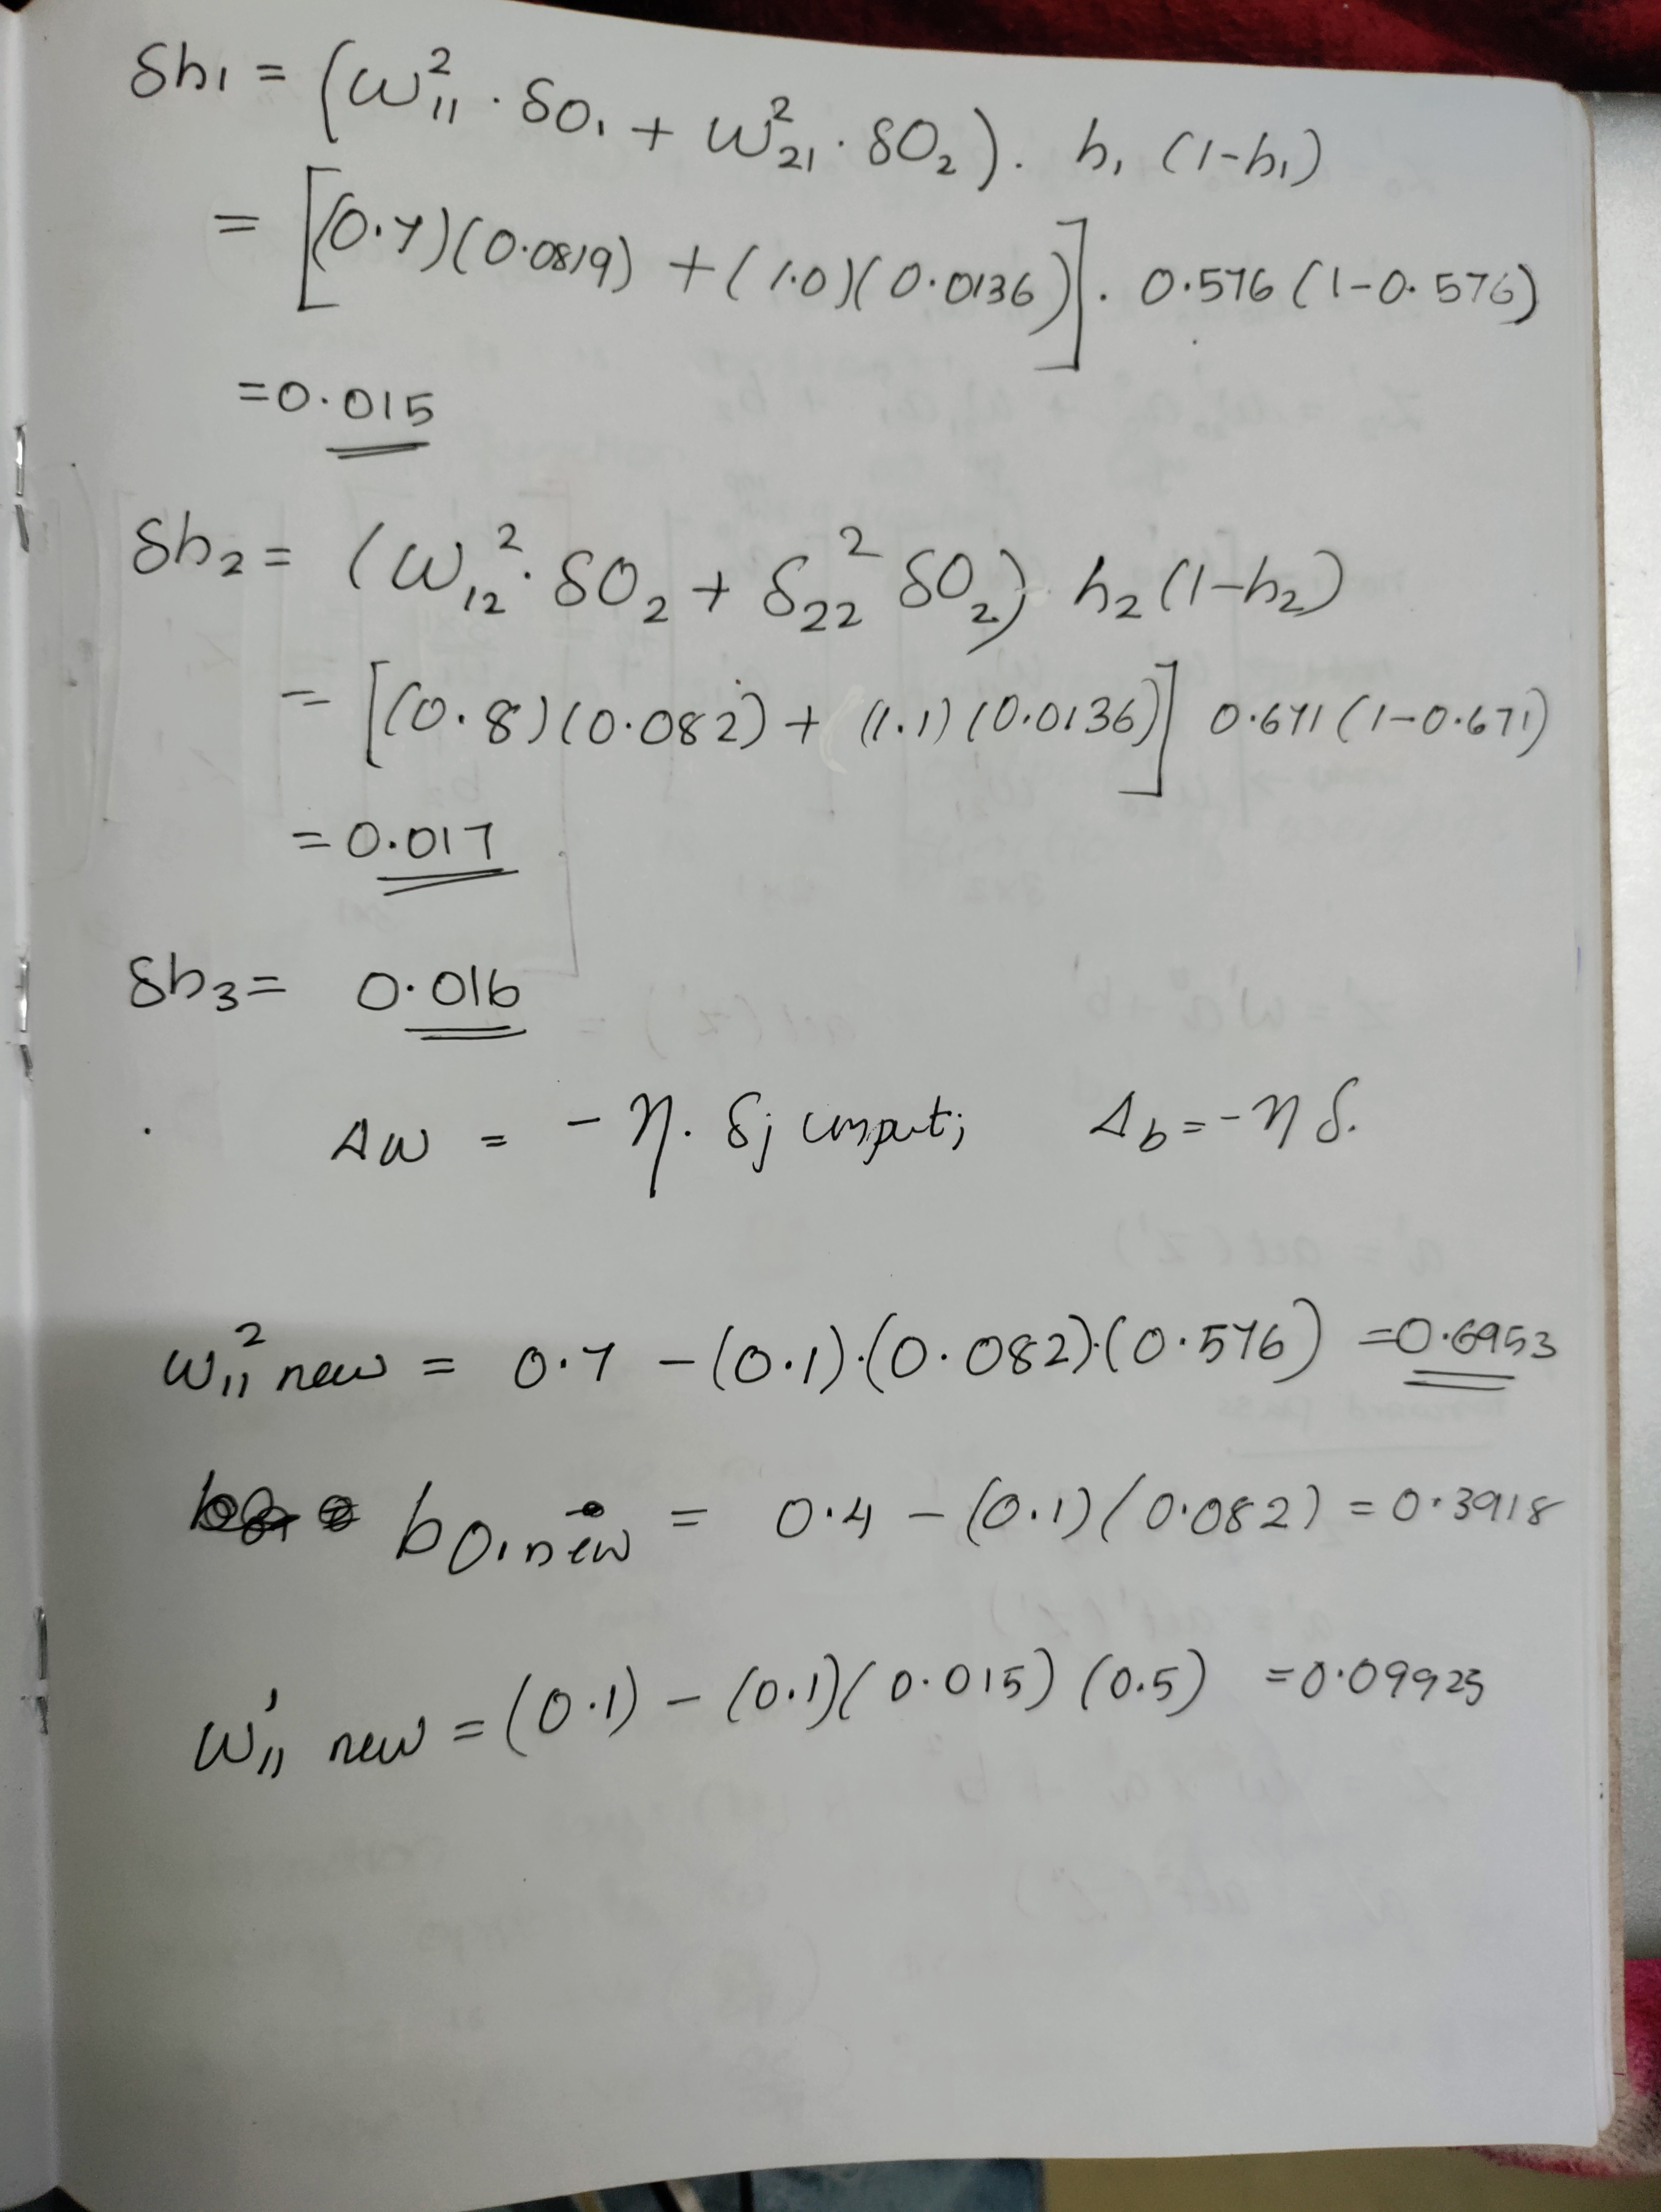 δh₁ = (w²₁₁ · δO₁ + w²₂₁ · δO₂) · h₁ (1-h₁)
= [(0.7)(0.0819) + (1.0)(0.0136)] · 0.576 (1-0.576)
= 0.015
δh₂ = (w₁₂² · δO₂ + δ₂₂² δO₂) h₂ (1-h₂)
= [(0.8)(0.082) + (1.1)(0.0136)] 0.671 (1-0.671)
= 0.017
δh₃ = 0.016
Δw = - η · δj input; Δb = - η δ.
w²₁₁ new = 0.7 - (0.1)·(0.082)·(0.576) = 0.6953
bO₁ new = 0.4 - (0.1)(0.082) = 0.3918
w'₁₁ new = (0.1) - (0.1)(0.015)(0.5) = 0.09925